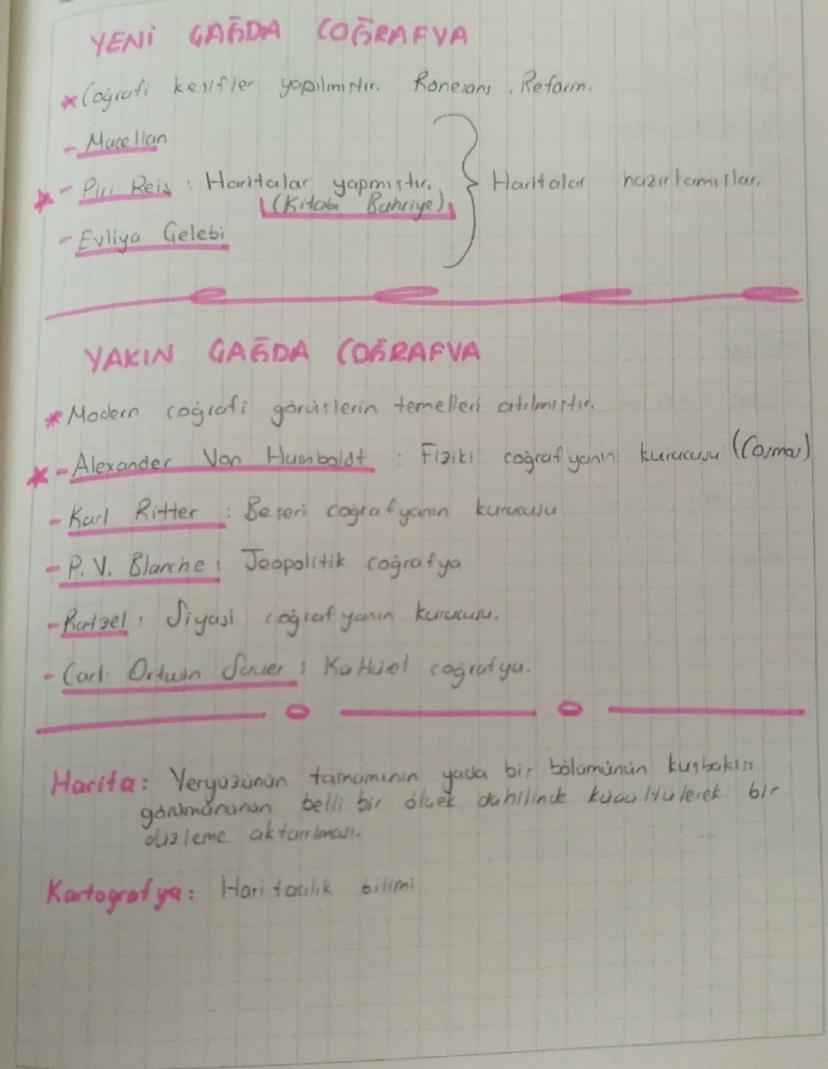 YENİ ÇAĞDA COĞRAFYA
* Coğrafi keşifler yapılmıştır. Rönesans, Reform.
- Macellan
* - Piri Reis : Haritalar yapmıştır. Haritalar hazırlamışlar.
(Kitabı Bahriye)
- Evliya Çelebi
YAKIN ÇAĞDA COĞRAFYA
* Modern coğrafi görüşlerin temelleri atılmıştır.
* - Alexander Von Humboldt : Fiziki coğrafyanın kurucusu (Cosmos)
- Karl Ritter : Beşeri coğrafyanın kurucusu
- P. V. Blanche : Jeopolitik coğrafya
- Ratzel : Siyasi coğrafyanın kurucusu.
- Carl Ortwin Sauer : Kültürel coğrafya.
Harita: Yeryüzünün tamamının yada bir bölümünün kuşbakışı
görünümünün belli bir ölçek dahilinde küçültülerek bir
düzleme aktarılması.
Kartografya: Haritacılık bilimi